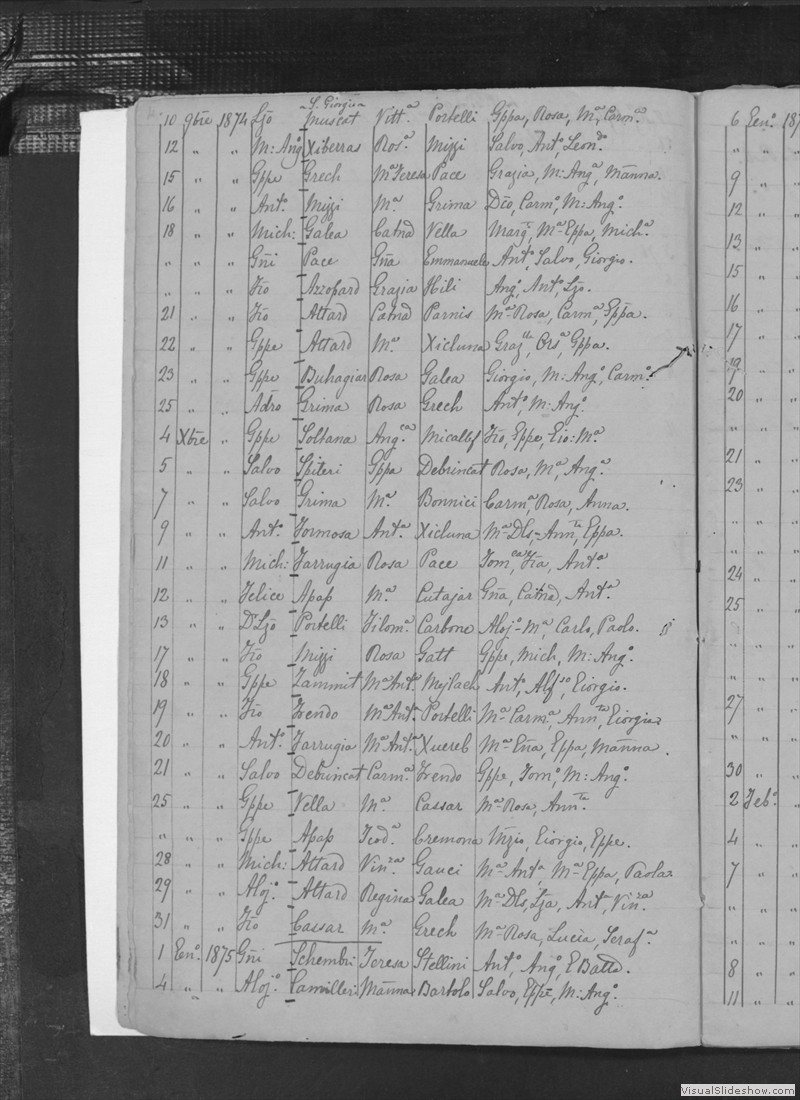 S. Giorgio
10 9bre 1874 Lzo Muscat Vitt.a Portelli Gppa, Rosa, M.a, Carm.a
12 „ „ M: Ang.o Xiberras Ros.a Mizzi Salvo, Ant.o, Leon.do
15 „ „ Gppe Grech M.a Teresa Pace Grazia, M: Ang.a, Mãnna.
16 „ „ Ant.o Mizzi M.a Grima Dco, Carm.o, M: Ang.o
18 „ „ Mich: Galea Catnã Vella Marg.ta, M.a Eppa, Mich.a
„ „ „ Gñi Pace Gña Emmanuele Ant.o, Salvo, Giorgio.
„ „ „ Fco Azzopard Grazia Hili Ang.o, Ant.o, Lzo.
21 „ „ Fco Attard Catnã Parnis M.a Rosa, Carm.a, Eppa.
22 „ „ Gppe Attard M.a Xicluna Graz.lla, Ors.a, Gppa.
23 „ „ Gppe Buhagiar Rosa Galea Giorgio, M: Ang.o, Carm.o
25 „ „ Adrõ Grima Rosa Grech Ant.o, M: Ang.o
4 Xbre „ Gppe Soltana Ang.ca Micallef Fco, Eppe, Eio: M.a
5 „ „ Salvo Spiteri Gppa Debrincat Rosa, M.a, Ang.a
7 „ „ Salvo Grima M.a Bonnici Carm.a, Rosa, Anna.
9 „ „ Ant.o Formosa Ant.a Xicluna M.a Dls, Ann.ta, Eppa.
11 „ „ Mich: Farrugia Rosa Pace Tom.ca, Fca, Ant.a
12 „ „ Felice Apap M.a Cutajar Gña, Catnã, Ant.a
13 „ „ Dr Lzo Portelli Filom.a Carbone Aloj.o M.a, Carlo, Paolo.
17 „ „ Fco Mizzi Rosa Gatt Gppe, Mich, M: Ang.o
18 „ „ Gppe Zammit M.a Ant.a Mejlach Ant.o, Alf.so, Eiorgio.
19 „ „ Fco Frendo M.a Ant.a Portelli M.a Carm.a, Ann.ta, Eiorgia
20 „ „ Ant.o Farrugia M.a Ant.a Xuereb M.a Eña, Eppa, Mãnna.
21 „ „ Salvo Debrincat Carm.a Frendo Gppe, Tom.o, M: Ang.o
25 „ „ Gppe Vella M.a Cassar M.a Rosa, Ann.ta
„ „ „ Gppe Apap Teod.a Cremona Vñzio, Eiorgio, Eppe.
28 „ „ Mich: Attard Vin.za Gauci M.a Ant.a, M.a Eppa, Paola
29 „ „ Aloj.o Attard Regina Galea M.a Dls, Lza, Ant.a, Vin.za
31 „ „ Fco Cassar M.a Grech M.a Rosa, Lucia, Seraf.a
1 Een.o 1875 Gñi Schembri Teresa Stellini Ant.o, Ang.o, E Batt.a
4 „ „ Aloj.o Camilleri Mãnna Bartolo Salvo, Eppe, M: Ang.o
6 Een.o 187
„ „
9 „
12 „
13 „
15 „
16 „
17 „
19
20 „
21 „
23 „
„ „
„ „
24 „
25 „
„ „
„ „
27 „
„ „
30 „
2 Feb.o
4 „
7 „
„ „
„ „
8 „
11 „
VisualSlideshow.com